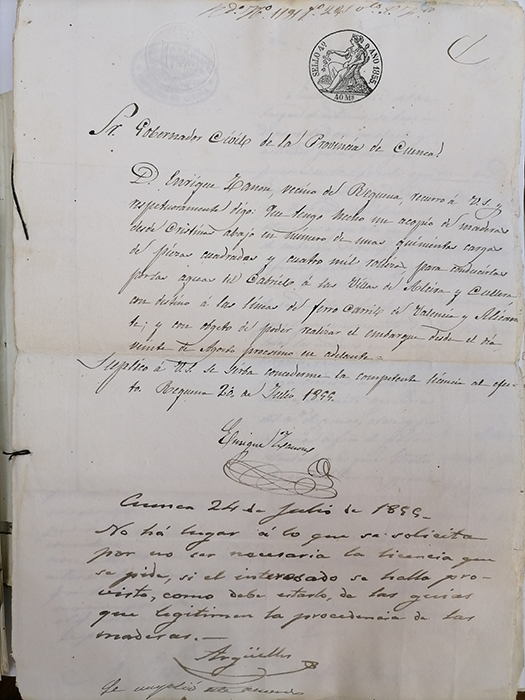 SELLO 4º AÑO 1855
40 Ms
Sr. Gobernador Civil de la Provincia de Cuenca!
D. Enrique Zanon, vecino de Requena, recurro á V.S. y
respetuosamente digo: Que tengo hecho un acopio de maderas
desde Cristinas abajo en número de unas quinientas cargas
de piezas cuadradas y cuatro mil rollizos, para conducirlas
por las aguas del Cabriel, á las Villas de Alcira y Cullera
con destino á las lineas de ferro Carril de Valencia y Alican-
te; y con objeto de poder realizar el embarque desde el dia
veinte de Agosto procsimo en adelante=
Suplico á V.S. se sirva concederme la competente licencia al efec-
to. Requena 20 de Julio 1855.
Enrique Zanon
Cuenca 24 de Julio de 1855-
No há lugar á lo que se solicita
por no ser necesaria la licencia que
se pide, si el interesado se halla pro-
visto, como debe estarlo, de las guias
que legitimen la procedencia de las
maderas.-
Argüelles
Se cumplió este